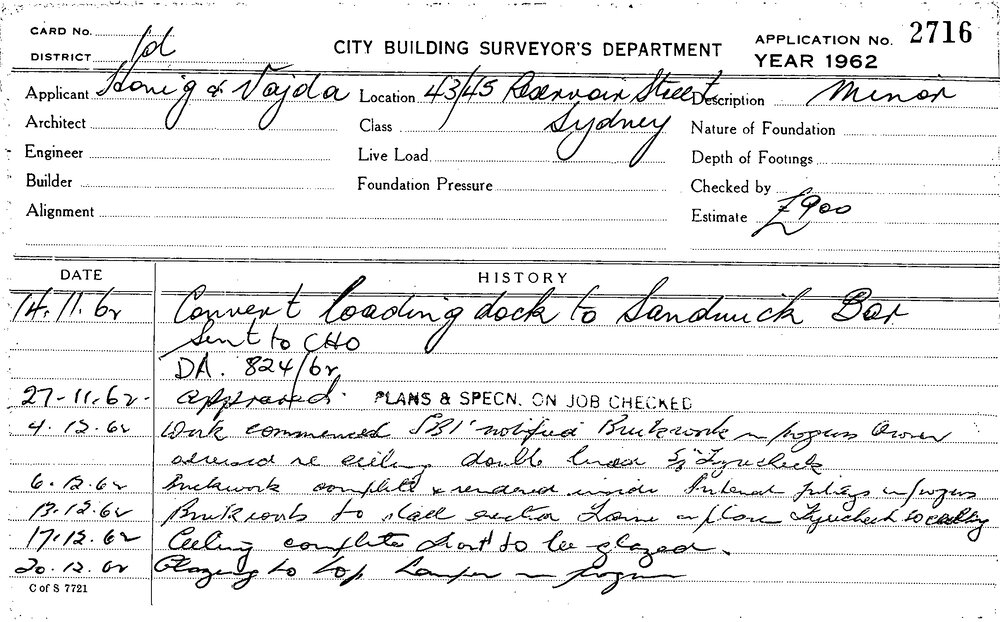 CARD No.
DISTRICT 1d
CITY BUILDING SURVEYOR'S DEPARTMENT
APPLICATION No. 2716
YEAR 1962
Applicant Honig & Vajda Location 43/45 Reservoir Street Description Minor
Architect Class Sydney Nature of Foundation
Engineer Live Load Depth of Footings
Builder Foundation Pressure Checked by
Alignment Estimate £900
DATE HISTORY
14.11.62 Convert loading dock to Sandwich Bar
Sent to CHO
DA. 824/62
27-11.62- approved. PLANS & SPECN. ON JOB CHECKED
4.12.62 Work commenced SBI notified Brickwork in progress Owner
advised re ceiling double lined
6.12.62 Brickwork complete & rendered inside Internal in progress
13.12.62 Brickwork to section in place to ceiling
17.12.62 Ceiling complete to be glazed.
20.12.62 Glazing to top in progress
C of S 7721